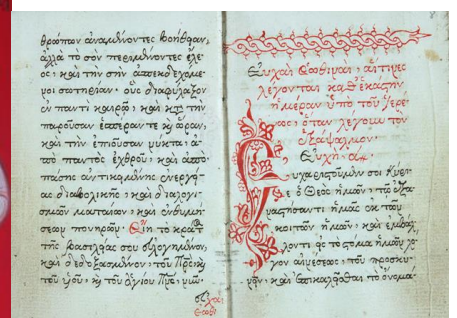 θρώπων ἀναμένοντες βοήθειαν,
ἀλλὰ τὸ σὸν περιμένοντες ἔλε
ος, καὶ τὴν σὴν ἀπεκδεχόμε
νοι σωτηρίαν· οὓς διαφύλαξον
ἐν παντὶ καιρῷ, καὶ κτ τὴν
παροῦσαν ἑσπέραν τε κ ὥραν,
καὶ τὴν ἐπιοῦσαν νύκτα, ἀ
πὸ παντὸς ἐχθροῦ, καὶ ἀπὸ
πάσης ἀντικειμένης ἐνεργεί
ας διαβολικῆς, καὶ διαλογι
σμῶν ματαίων, καὶ ἐνθυμή
σεων πονηρῶν. τὸ κρά
τῆς βασιλείας σου εὐλογημένον,
καὶ δεδοξασμένον, τοῦ Πρς κ
τοῦ υἱοῦ, κ τοῦ ἁγίου Πνς, νῦν
Εὐχαὶ
Ἑωθι
Εὐχαὶ Ἑωθιναί, αἵτινες
λέγονται καθ' ἑκάστην
ἡμέραν ὑπὸ τοῦ ἱερέ
ως, ὅταν λέγωμεν τὸν
ἑξάψαλμον·
Εὐχὴ αη.
Εὐχαριστοῦμέν σοι Κύρι
ε ὁ Θεὸς ἡμῶν, τῷ ἐξα
ναστήσαντι ἡμᾶς ἐκ τῶν
κοιτῶν ἡμῶν, καὶ ἐμβαλ
λόντι εἰς τὸ στόμα ἡμῶν λό
γον αἰνέσεως, τοῦ προσκυ
νεῖν, καὶ ἐπικαλεῖσθαι τὸ ὄνομά